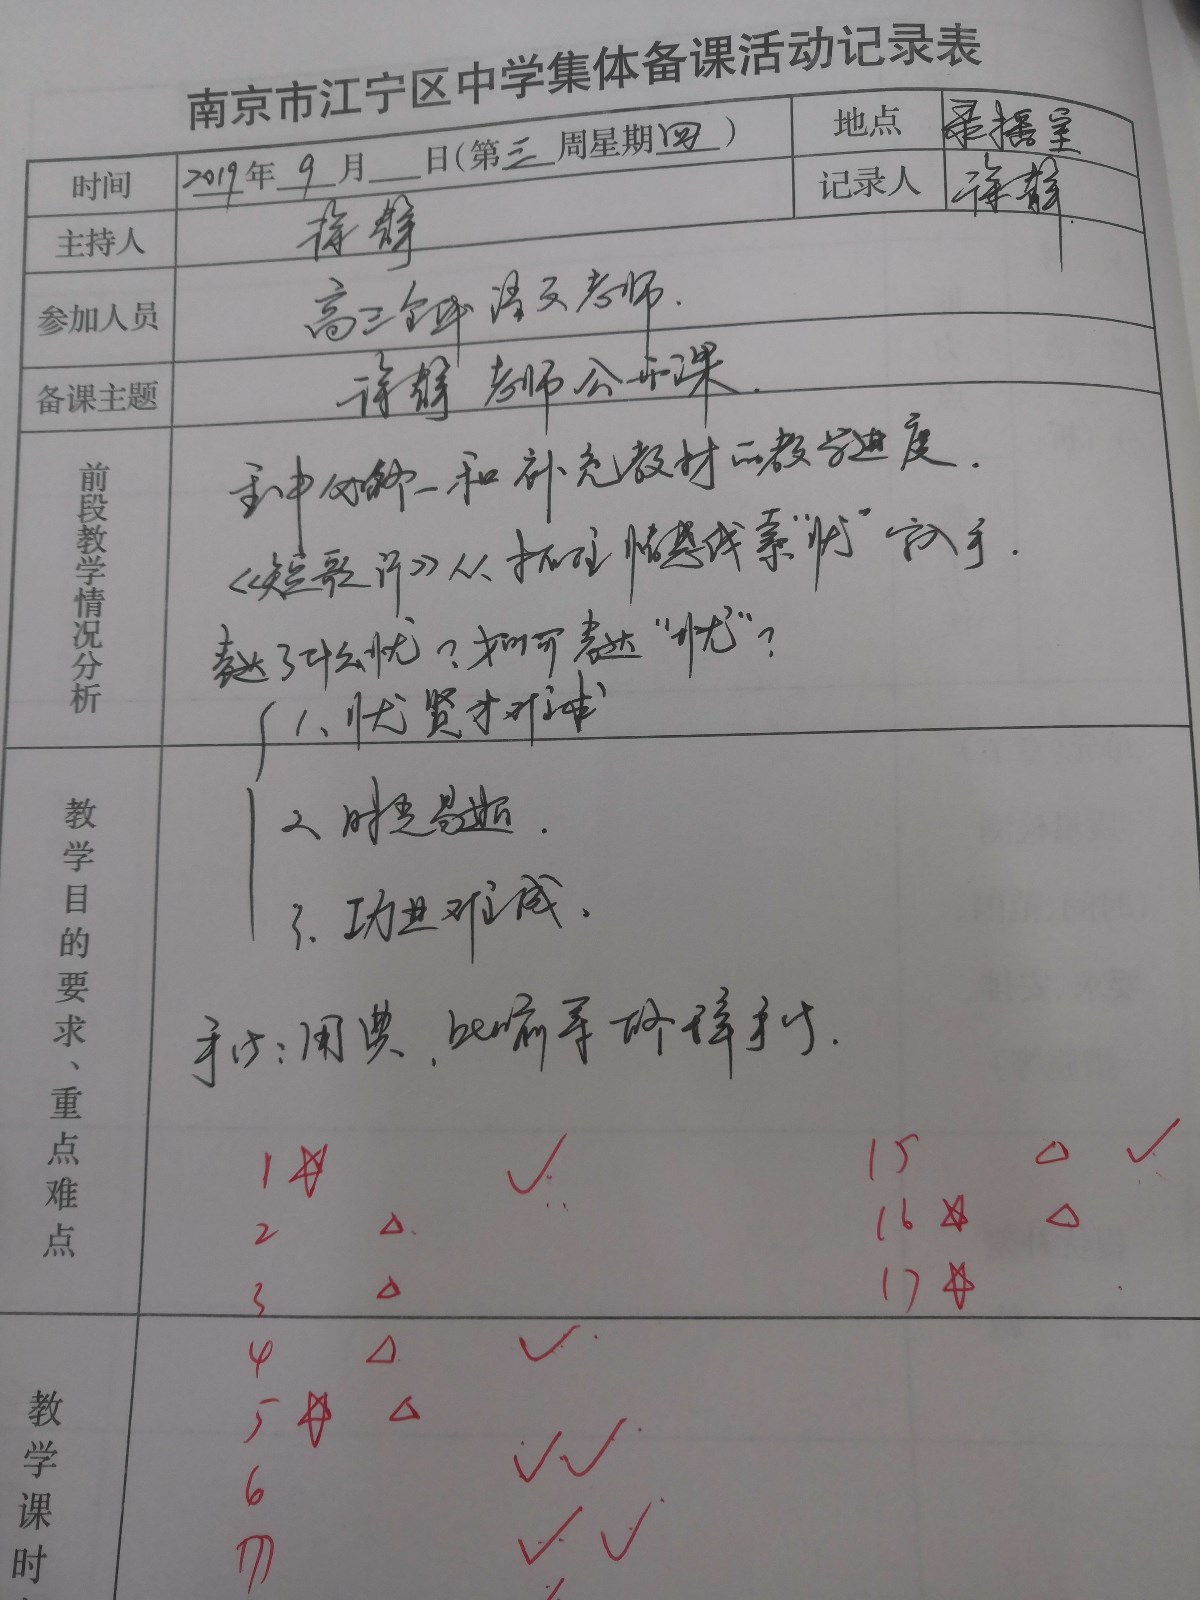 南京市江宁区中学集体备课活动记录表
时间 2019年 9月 日(第三周星期四) 地点 录播室
主持人 徐静 记录人 徐静
参加人员 高三全体语文老师.
备课主题 徐静老师公开课.
前段教学情况分析
和补充教材的教学进度.
《短歌行》从抓住情感线索“忧”字入手.
表达了什么忧?如何表达“忧”?
1、忧贤才难求
教学目的要求、重点难点
2 时光易逝.
3. 功业难成.
手法:用典、比喻等修辞手法.
1 ☆ ✓ 15 △ ✓
2 △ 16 ☆ △
3 △ 17 ☆
教学课时
4 △ ✓
5 ☆ △
6 ✓✓
7 ✓ ✓